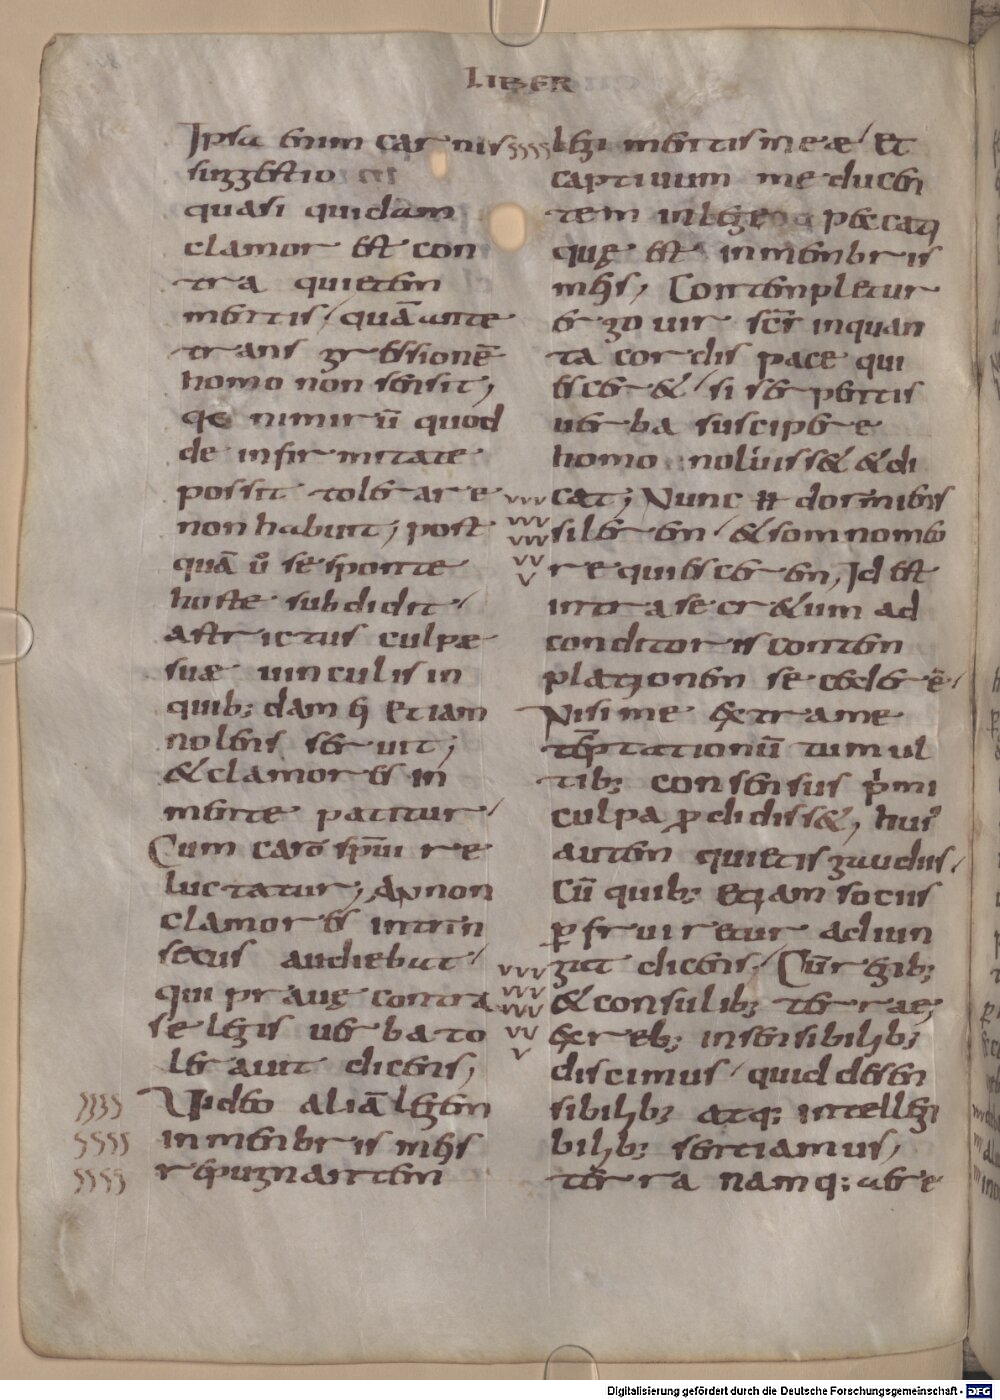 LIBER
Ipsa enim carnis
suggestio
quasi quidam
clamor est con
tra quietem
mentis, quā ante
transgressionē
homo non sensit;
qe nimirū quod
de infirmitate
possit tolerare
non habuit; post
quā ů se sponte
hoste subdidit,
astrictus culpae
suae uinculis in
quib; dam ħ etiam
nolens seruit;
& clamores in
mente patitur,
Cum caro spm̄ui re
luctatur; An non
clamores intrin
secus audiebat,
qui prauę contra
se legis uerba to
lerauit dicens;
Uideo aliā legem
in membris meis
repugnantem
legi mentis meae, et
captiuum me ducen
tem in lege peccati
quę est in membris
meis, Contempletur
ergo uir scs̄ in quan
ta cordis pace qui
esceret, si serpentis
uerba suscipere
homo noluisset & di
cat; Nunc n̄ dormiens
silerem & somno meo
requiescerem, Id est
intra secretum ad
conditoris contem
plationem se cederē,
Nisi me extra me
tēptationū tumul
tib; consensus primi
culpa p̲didisset, huiꝰ
autem quietis gaudiis,
Cū quib; etiam socius
p̲frueretur adiun
git dicens, Cum regib;
& consulib; terrae;
Ex reb; insensibilib;
discimus, quid de sen
sibilib; atq; intellegi
bilib; sentiamus,
terra namq; aere
Digitalisierung gefördert durch die Deutsche Forschungsgemeinschaft - DFG